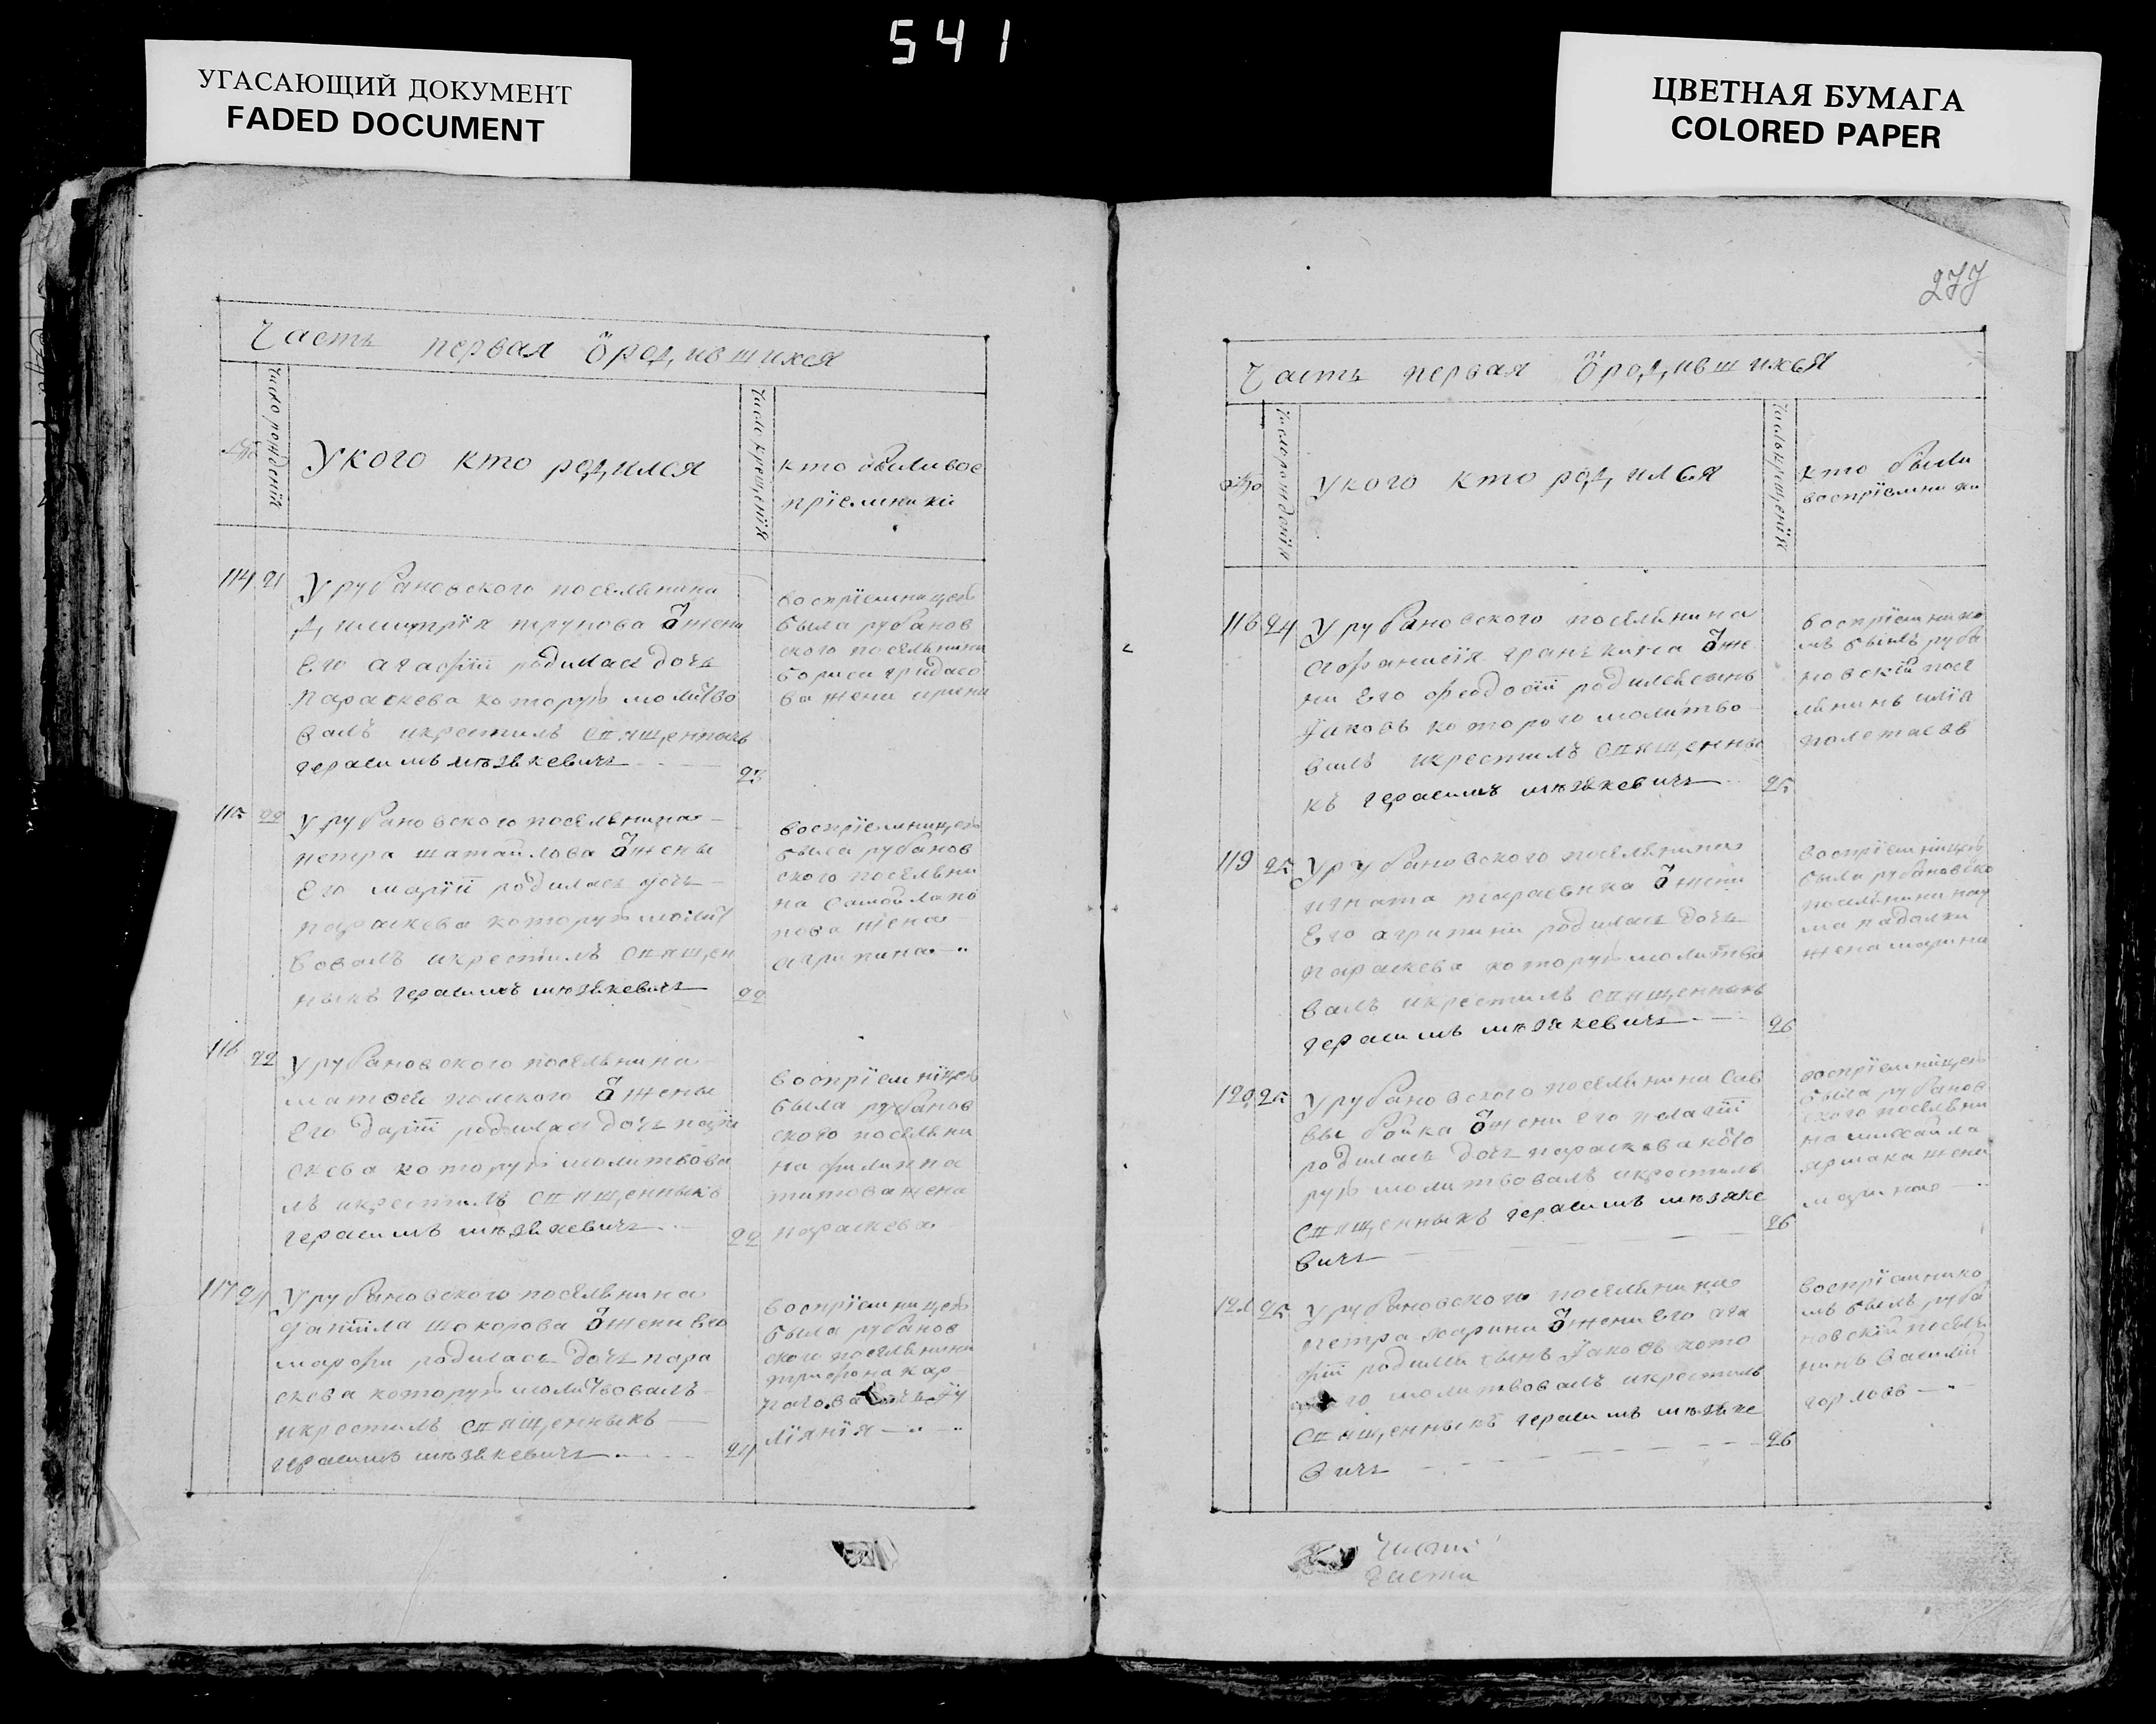 541
УГАСАЮЩИЙ ДОКУМЕНТ
FADED DOCUMENT
ЦВЕТНАЯ БУМАГА
COLORED PAPER
Часть первая ѿ родившихся
число рожденія
У кого кто родился
число крещенія
кто были вос
пріемники
114 21 У рубановского поселянина
Димитрія трунова ѿ жени
его агафіи родилась дочь
параскева которую молитво
валъ и крестилъ священникъ
герасимъ мѣзѣкевичъ 23
воспріемницею
была рубанов
ского поселянина
бориса гридасо
ва жена ирина
115 22 У рубановского поселянина
петра шатайлова ѿ жены
его маріи родилась дочь
параскева которую молит
вовалъ и крестилъ священ
никъ герасимъ мѣзѣкевичъ 22
воспріемницею
была рубанов
ского поселяни
на самойла по
пова жена
агрипина
116 22 У рубановского поселянина
матфея полского ѿ жены
его даріи родилась дочь пара
скева которую молитвова
лъ и крестилъ священникъ
герасимъ мѣзѣкевичъ 22
воспріемніцею
была рубанов
ского поселяни
на филиппа
титова жена
параскева
117 24 У рубановского поселянина
ѿ жени его
марфи родилась дочь пара
скева которую молитвовалъ
и крестилъ священникъ
герасимъ мѣзѣкевичъ 24
воспріемницею
была рубанов
ского поселянина
трифона кар
ліянія
277
Часть первая ѿ родившихся
число рожденія
У кого кто родился
число крещенія
кто были
воспріемники
118 24 У рубановского поселянина
афанасія гранкина ѿ же
ни его феодосіи родился сынъ
Іаковъ которого молитво
валъ и крестилъ священны
къ герасимъ мѣзѣкевичъ 25
воспріемнико
мъ былъ руба
новскій посе
лянинъ илія
полетаевъ
119 25 У рубановского поселянина
игната ѿ жени
его агрипини родилась дочь
параскева которую молитво
валъ и крестилъ священникъ
герасимъ мѣзѣкевичъ 26
воспріемніцею
была рубановско
поселянина нау
ма падалки
жена марина
120 25 У рубановского поселянина сав
вы бойка ѿ жени его пелагіи
родилась дочь параскева кото
рую молитвовалъ и крестилъ
священникъ герасимъ мѣзѣке
вичъ 26
воспріемніцею
была рубанов
ского поселяни
на михайла
ярмака жена
марина
121 25 У рубановского поселянина
петра харина ѿ жени его ага
фіи родился сынъ Іаковъ кото
го молитвовалъ и крестилъ
священникъ герасимъ мѣзѣке
вичъ 26
воспріемнико
мъ былъ руба
новскій поселя
нинъ василій
горловъ
Части